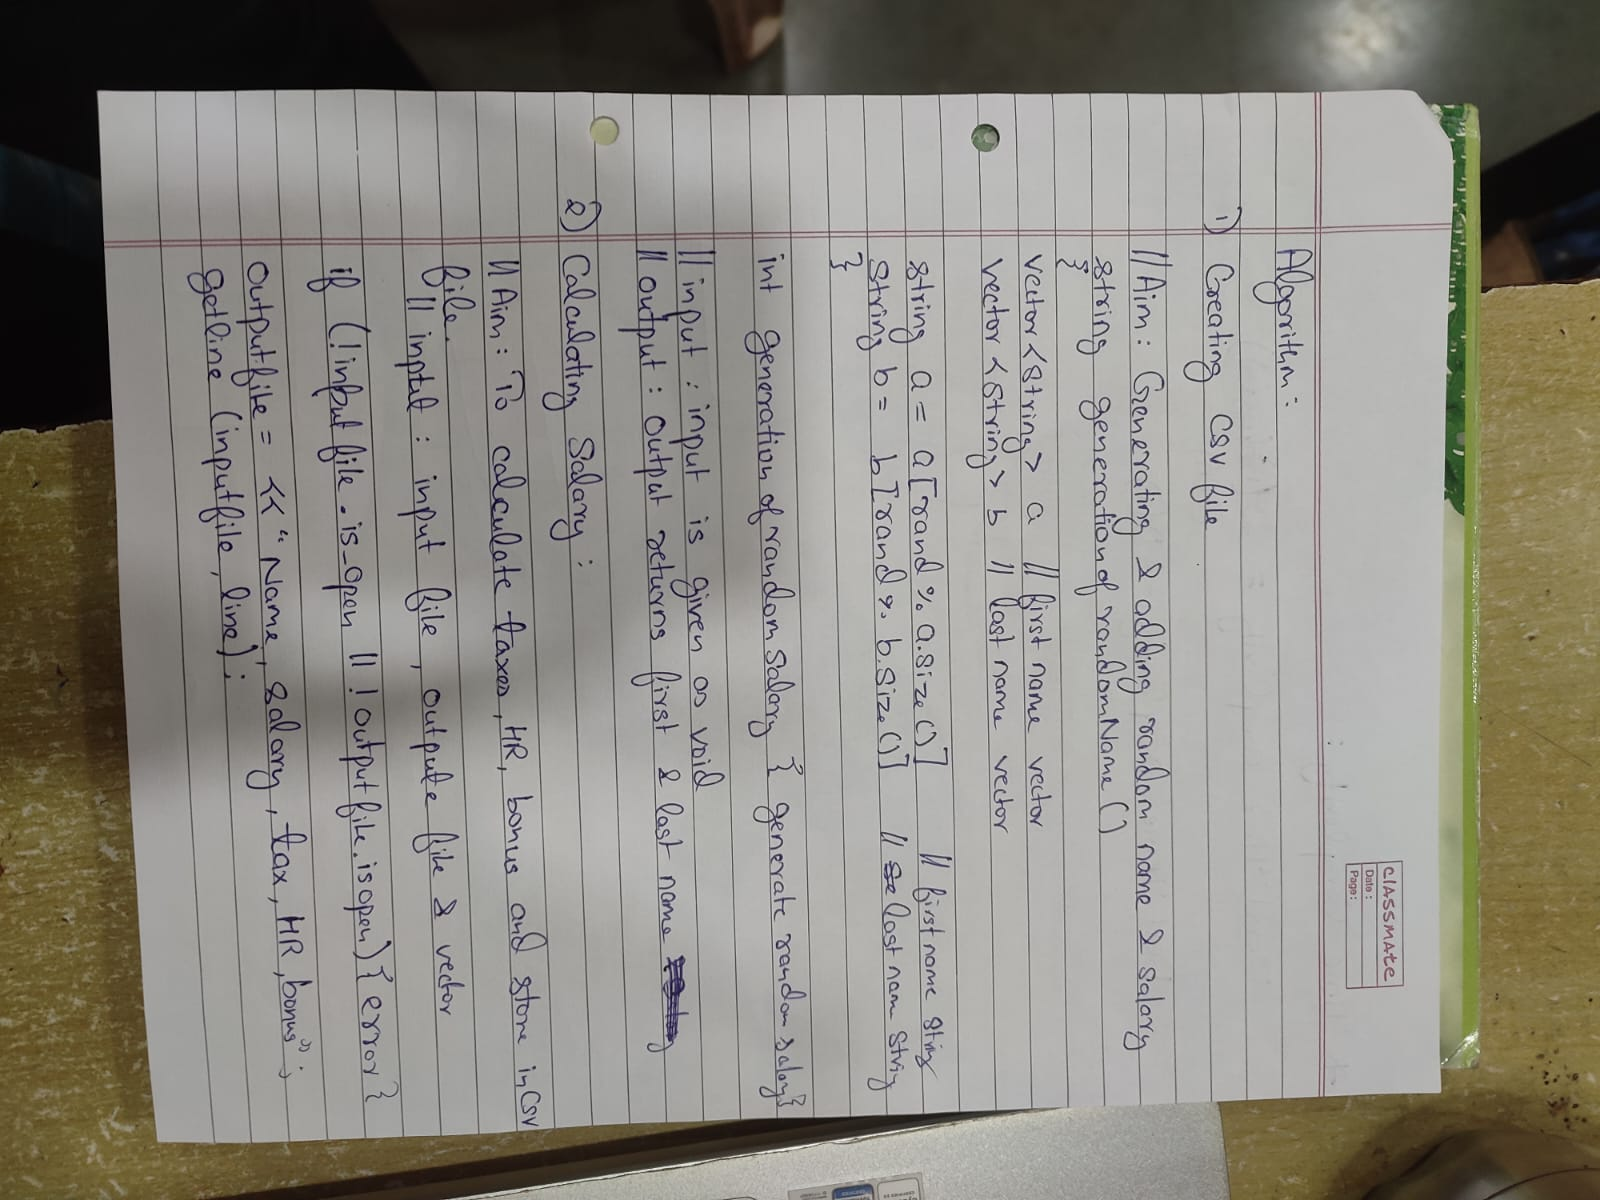 classmate
Date :
Page :
Algorithm :
1) Creating CSV file
// Aim : Generating & adding random name & salary
string generationofrandomName()
{
vector <string> a // first name vector
vector <string> b // last name vector
string a = a[rand % a.size()] // first name string
string b = b[rand % b.size()] // last name string
}
int generation of random salary { generate random salary}
// input : input is given as void
// output : output returns first & last name
2) Calculating Salary :
// Aim : To calculate taxes, HR, bonus and store in CSV
file.
// input : input file, outpute file & vector
if (!inputfile.is_open || !outputfile.isopen) { error}
outputfile = << "Name, salary, tax, HR, bonus";
getline (inputfile, line);